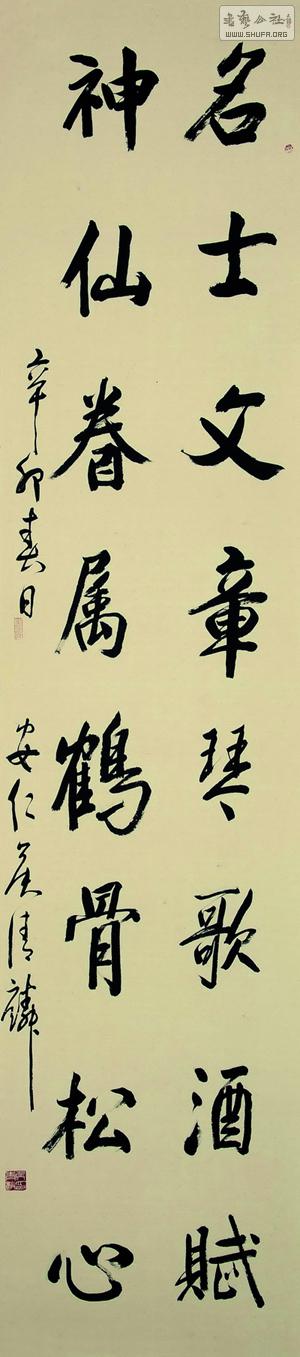 名士文章琴歌酒赋
神仙眷属鹤骨松心
辛卯春日
安仁侯清麟
书艺公社
WWW.SHUFA.ORG